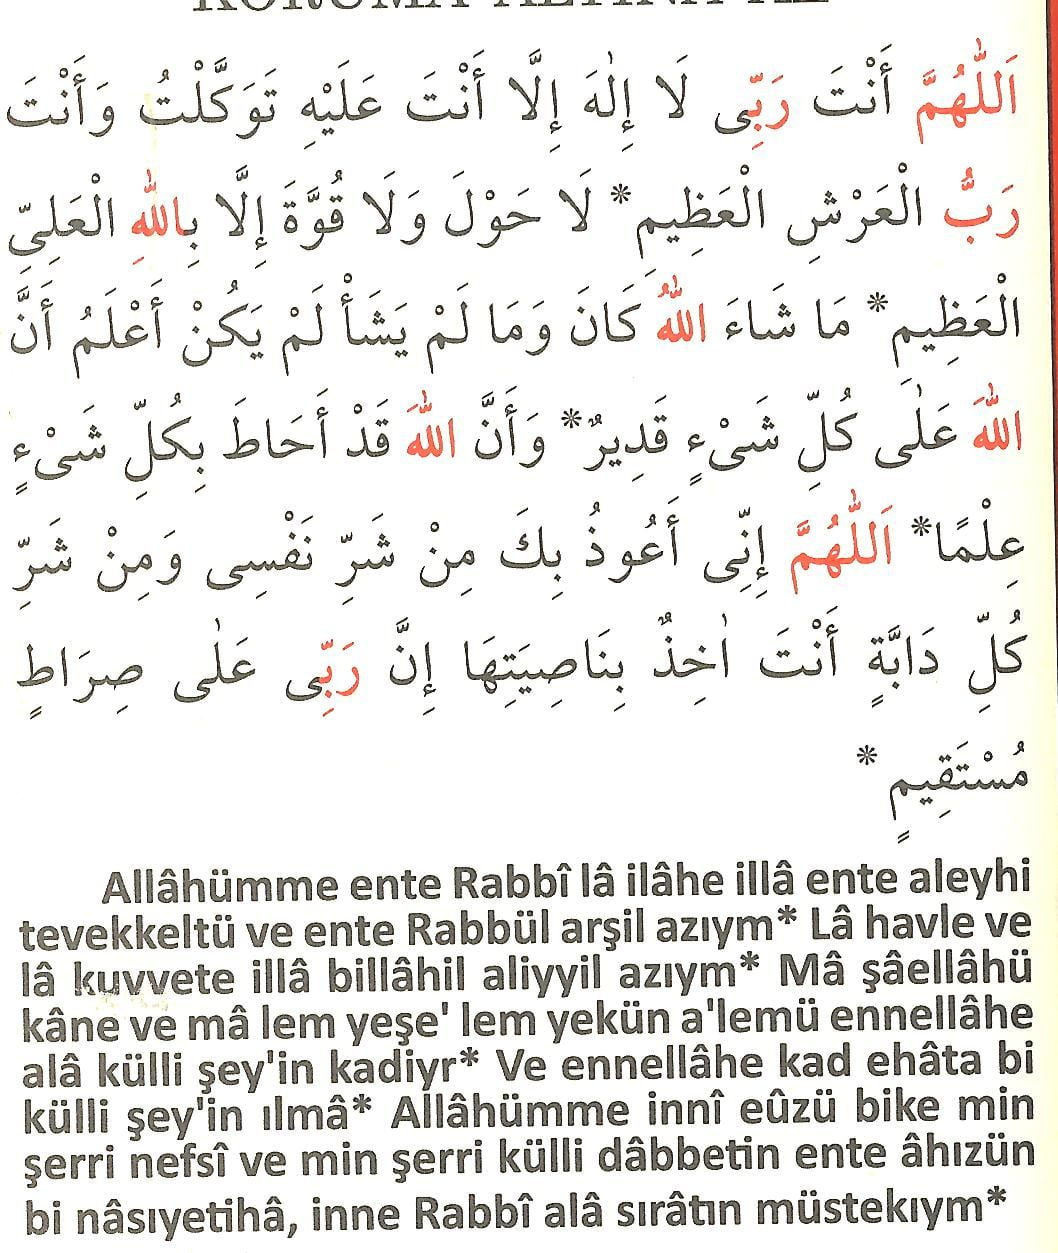 اَللّٰهُمَّ أَنْتَ رَبِّى لَا إِلٰهَ إِلَّا أَنْتَ عَلَيْهِ تَوَكَّلْتُ وَأَنْتَ
رَبُّ الْعَرْشِ الْعَظِيمِ* لَا حَوْلَ وَلَا قُوَّةَ إِلَّا بِاللّٰهِ الْعَلِىِّ
الْعَظِيمِ* مَا شَاءَ اللّٰهُ كَانَ وَمَا لَمْ يَشَأْ لَمْ يَكُنْ أَعْلَمُ أَنَّ
اللّٰهَ عَلٰى كُلِّ شَىْءٍ قَدِيرٌ* وَأَنَّ اللّٰهَ قَدْ أَحَاطَ بِكُلِّ شَىْءٍ
عِلْمًا* اَللّٰهُمَّ إِنِّى أَعُوذُ بِكَ مِنْ شَرِّ نَفْسِى وَمِنْ شَرِّ
كُلِّ دَابَّةٍ أَنْتَ اٰخِذٌ بِنَاصِيَتِهَا إِنَّ رَبِّى عَلٰى صِرَاطٍ
مُسْتَقِيمٍ*
Allâhümme ente Rabbî lâ ilâhe illâ ente aleyhi
tevekkeltü ve ente Rabbül arşil azıym* Lâ havle ve
lâ kuvvete illâ billâhil aliyyil azıym* Mâ şâellâhü
kâne ve mâ lem yeşe' lem yekün a'lemü ennellâhe
alâ külli şey'in kadiyr* Ve ennellâhe kad ehâta bi
külli şey'in ılmâ* Allâhümme innî eûzü bike min
şerri nefsî ve min şerri külli dâbbetin ente âhızün
bi nâsıyetihâ, inne Rabbî alâ sırâtın müstekıym*